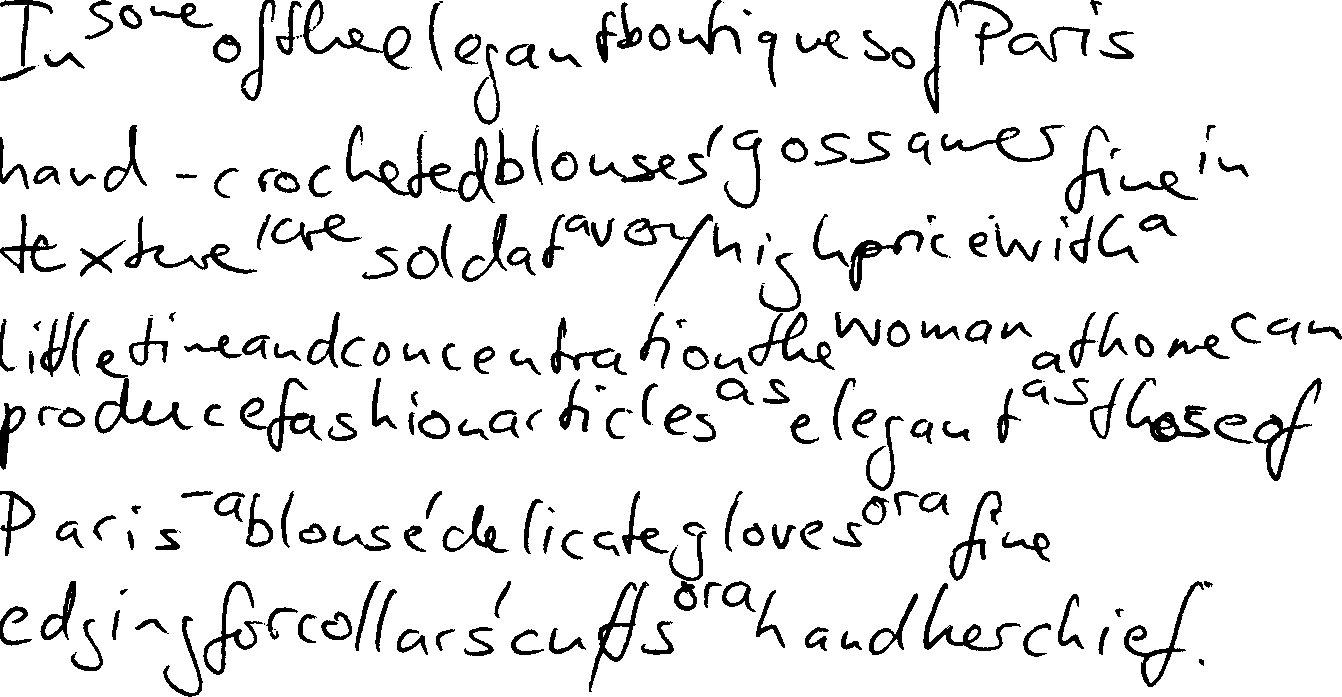 In some of the elegant boutiques of Paris
hand-crocheted blouses, gossamer fine in
texture, are sold at a very high price with a
little time and concentration the woman at home can
produce fashion articles as elegant as those of
Paris - a blouse, delicate gloves or a fine
edging for collars, cuffs or a handkerchief.